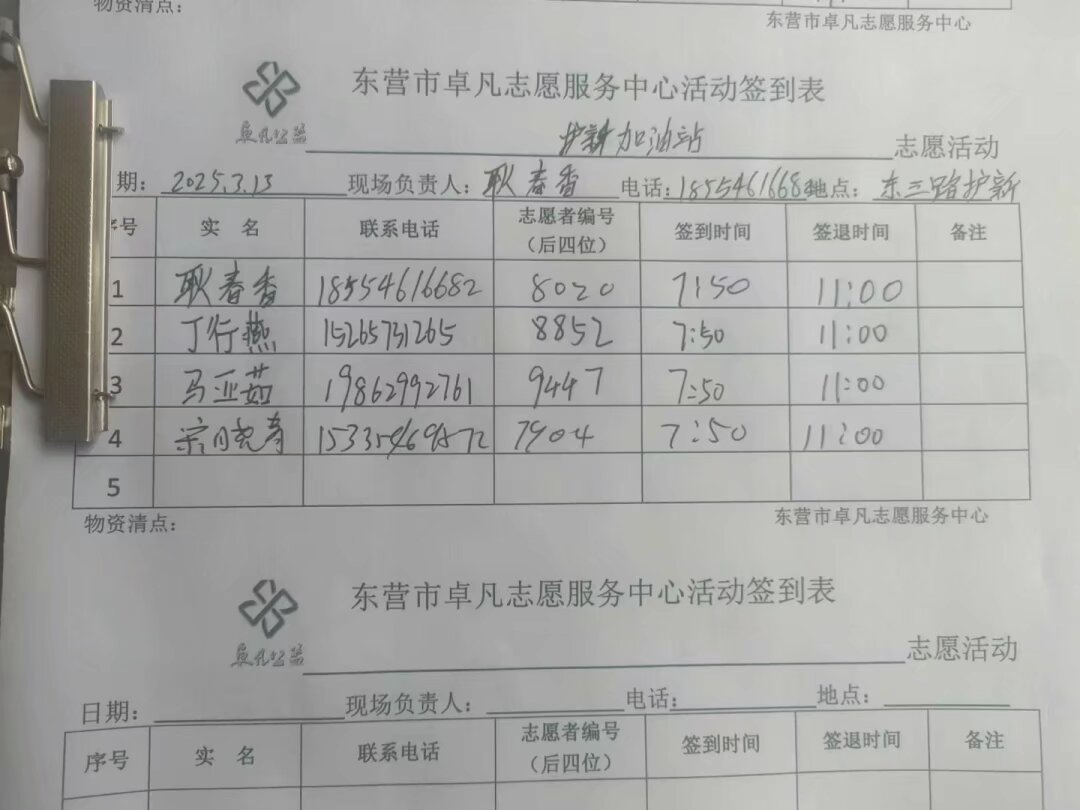 物资清点：
东营市卓凡志愿服务中心
卓凡公益
东营市卓凡志愿服务中心活动签到表
护新加油站 志愿活动
期：2025.3.13 现场负责人：耿春香 电话：18554616682 地点：东三路护新
序号 实 名 联系电话 志愿者编号（后四位） 签到时间 签退时间 备注
1 耿春香 18554616682 8020 7:50 11:00
2 丁行燕 15265731265 8852 7:50 11:00
3 马亚茹 19862992761 9447 7:50 11:00
4 宗晓青 1533546 7904 7:50 11:00
5
物资清点：
东营市卓凡志愿服务中心
卓凡公益
东营市卓凡志愿服务中心活动签到表
志愿活动
日期： 现场负责人： 电话： 地点：
序号 实 名 联系电话 志愿者编号（后四位） 签到时间 签退时间 备注